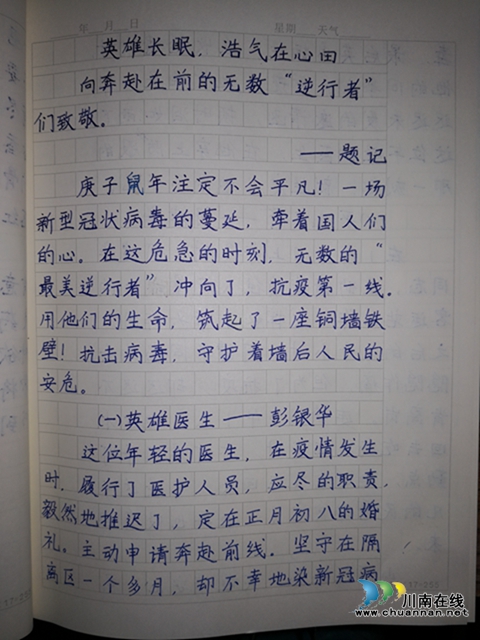 年 月 日 星期 天气
英雄长眠，浩气在心田
向奔赴在前的无数“逆行者”
们致敬。
——题记
庚子鼠年注定不会平凡！一场
新型冠状病毒的蔓延，牵着国人们
的心。在这危急的时刻，无数的“
最美逆行者”，冲向了，抗疫第一线。
用他们的生命，筑起了一座铜墙铁
壁！抗击病毒，守护着墙后人民的
安危。
(一)英雄医生——彭银华
这位年轻的医生，在疫情发生
时，履行了医护人员，应尽的职责，
毅然地推迟了，定在正月初八的婚
礼。主动申请奔赴前线。坚守在隔
离区一个多月，却不幸地染新冠病
川南在线
www.chuannan.net